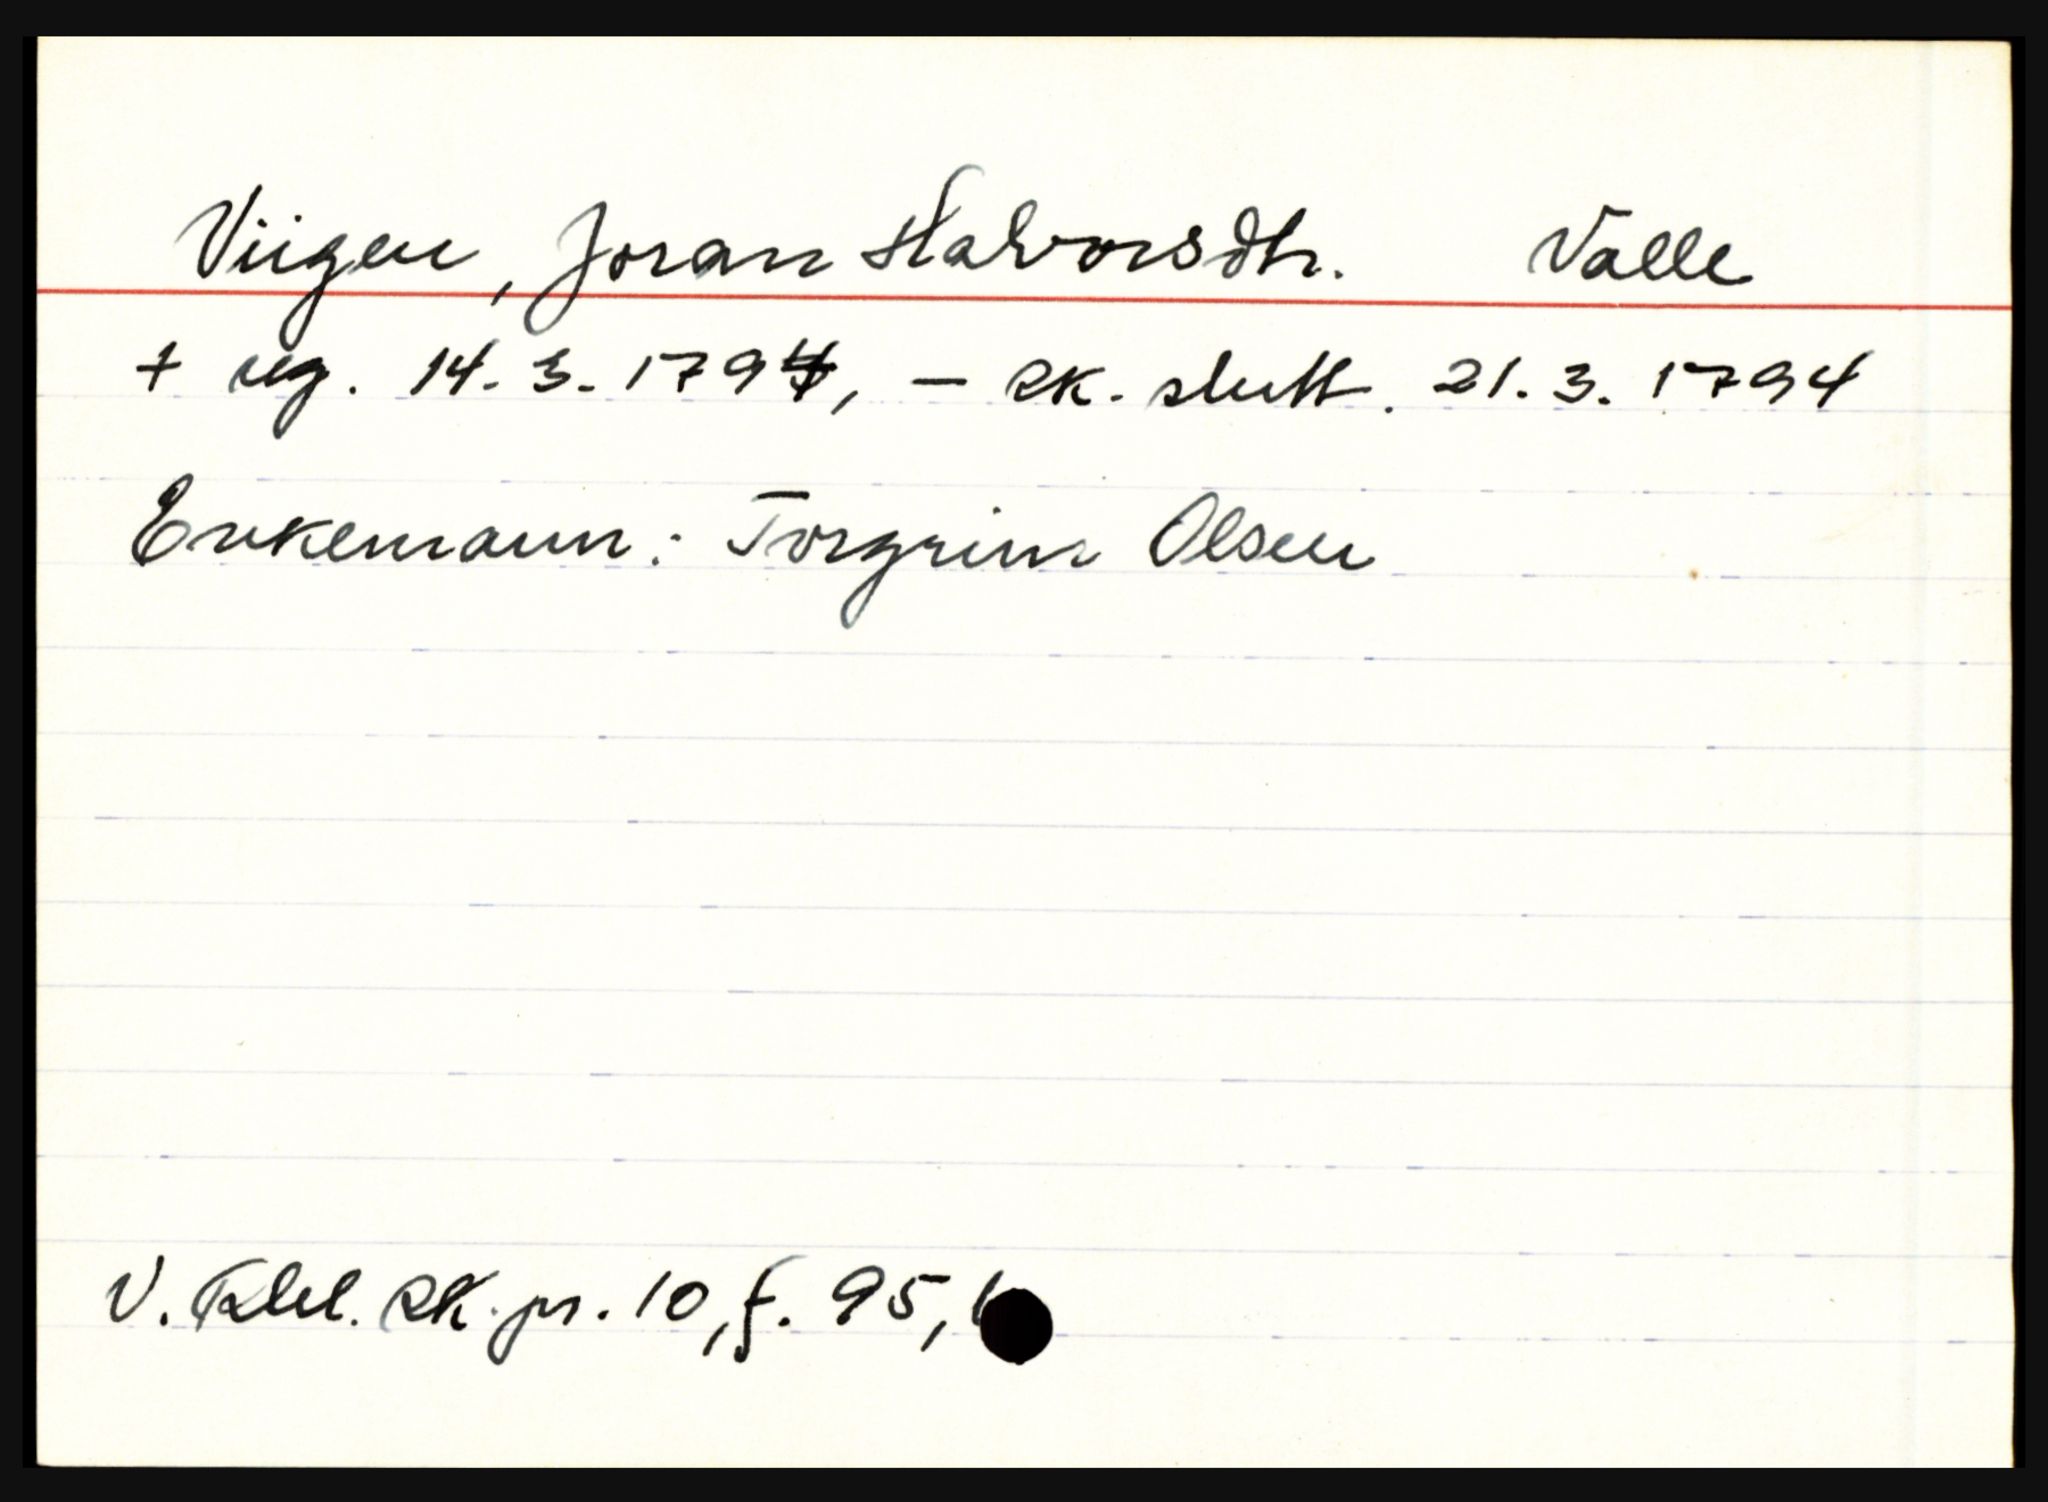 Viigen, Joran Halvorsdtr. Valle
+ reg. 14.3.1794, - sk. slutt. 21.3.1794
Enkemann: Torgrim Olsen
V. Rbel. sk. pr. 10, f. 95, b